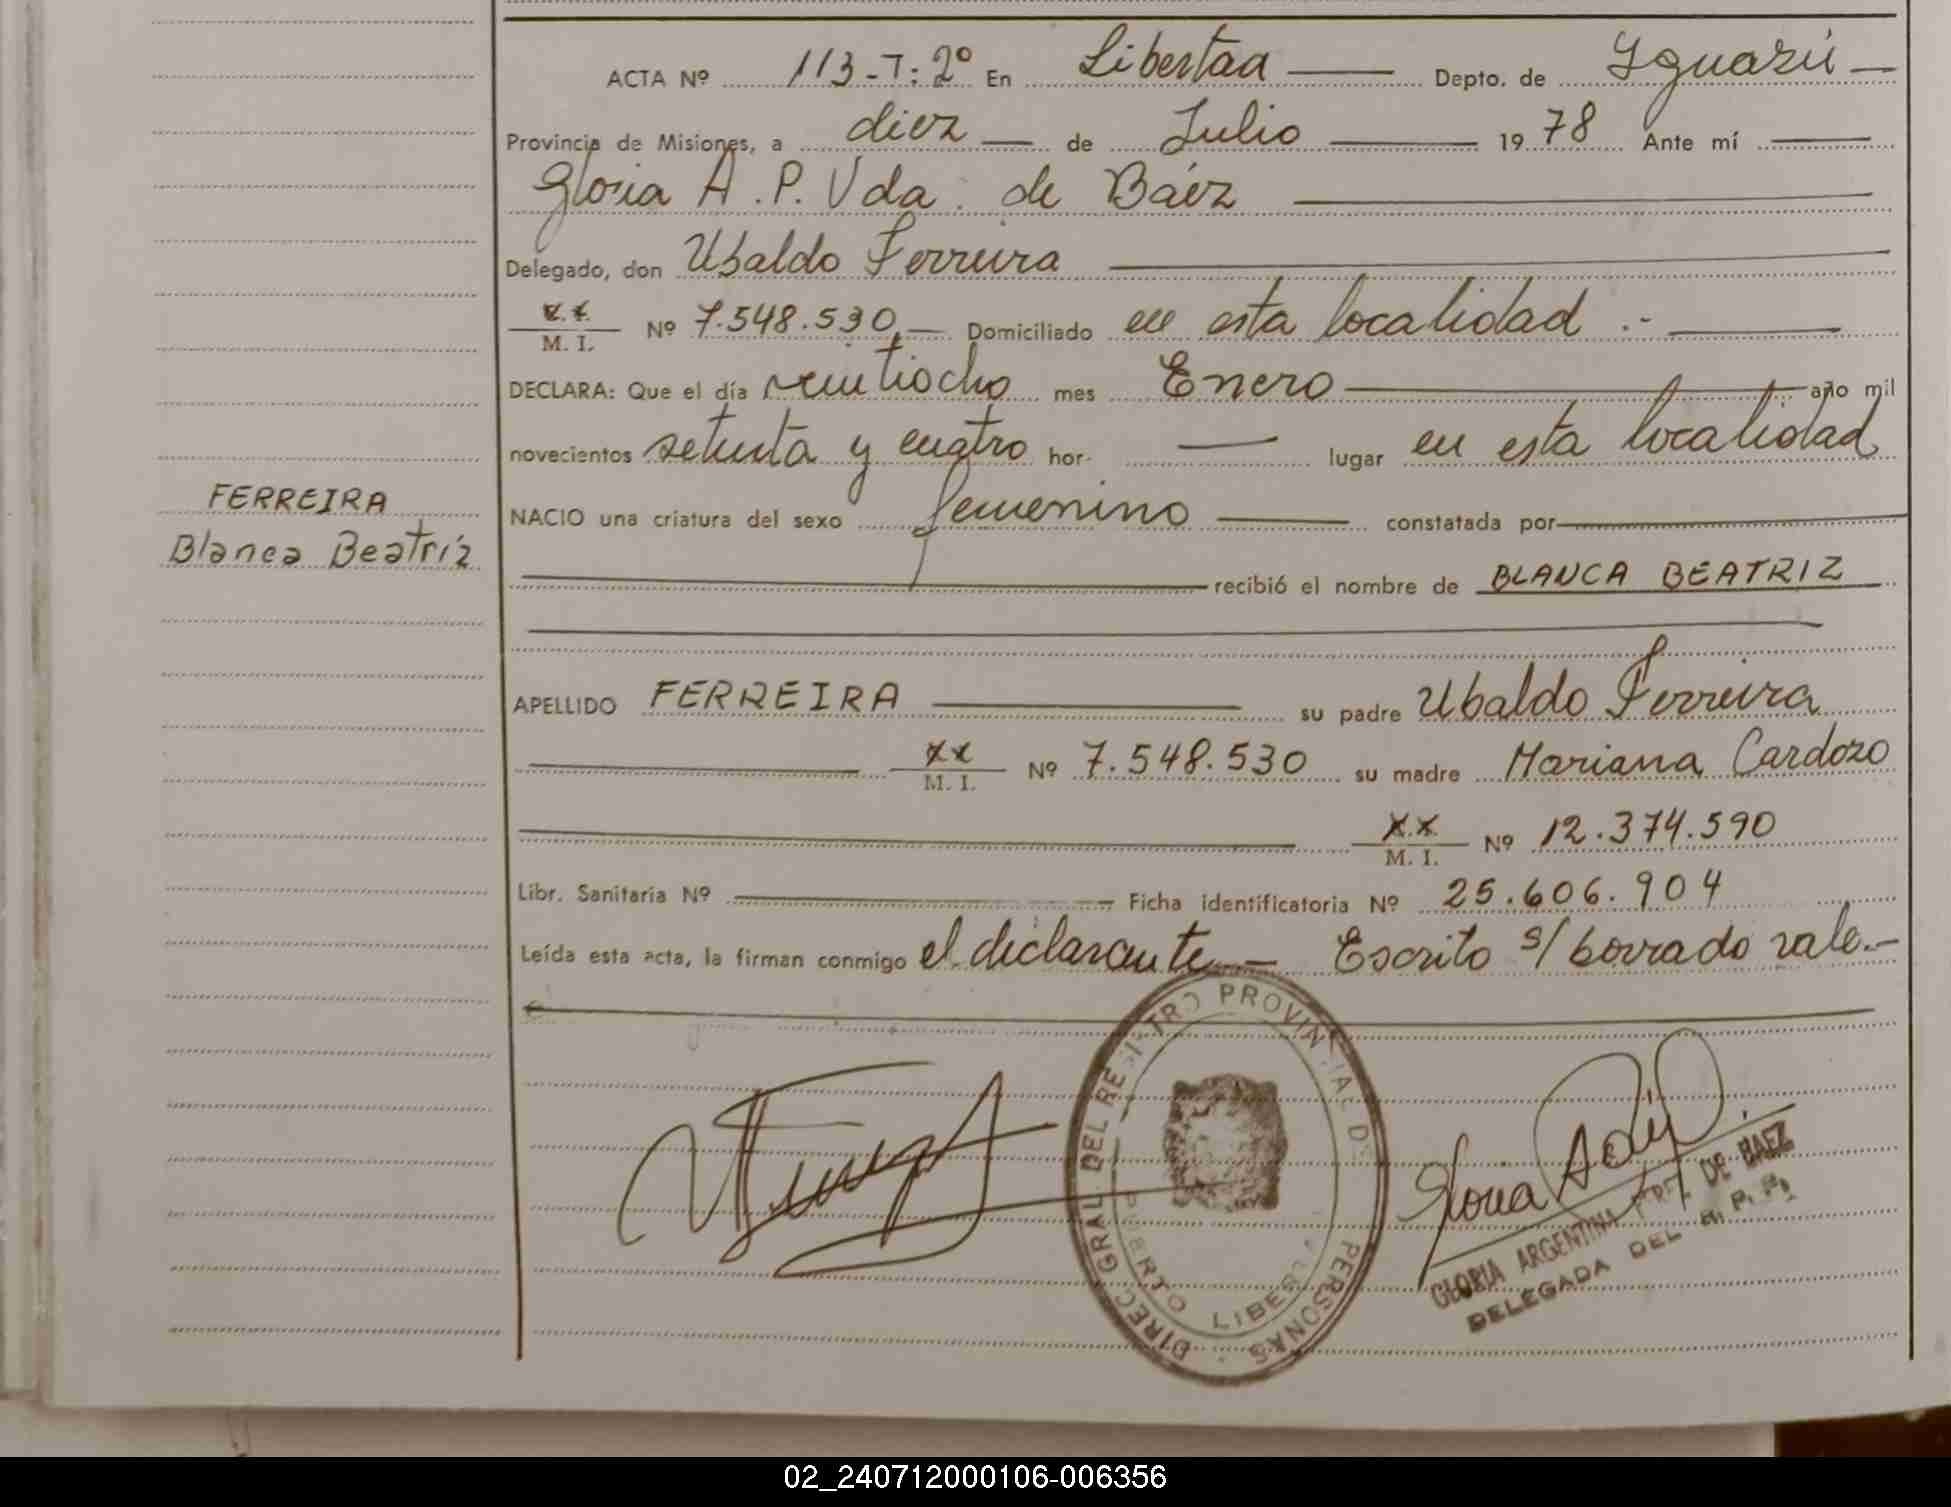 ACTA Nº 113-T: 2º En Libertad Depto. de Iguazú
Provincia de Misiones, a diez de Julio 1978 Ante mí
Gloria A. P. Vda. de Báez
Delegado, don Ubaldo Ferreira
M. I. Nº 7.548.530 Domiciliado en esta localidad .-
DECLARA: Que el día veintiocho mes Enero año mil
novecientos setenta y cuatro hor- lugar en esta localidad
FERREIRA
Blanca Beatríz
NACIO una criatura del sexo femenino constatada por
recibió el nombre de BLANCA BEATRIZ
APELLIDO FERREIRA su padre Ubaldo Ferreira
xx
M. I. Nº 7.548.530 su madre Mariana Cardozo
x.x
M. I. Nº 12.374.590
Libr. Sanitaria Nº Ficha identificatoria Nº 25.606.904
Leída esta acta, la firman conmigo el declarante - Escrito s/ borrado vale.-
DIREC. GRAL. DEL REGISTRO PROVINCIAL DE PERSONAS
PUERTO LIBERTAD
Gloria
GLORIA ARGENTINA DE BAEZ
DELEGADA DEL R. P. P.
02_240712000106-006356